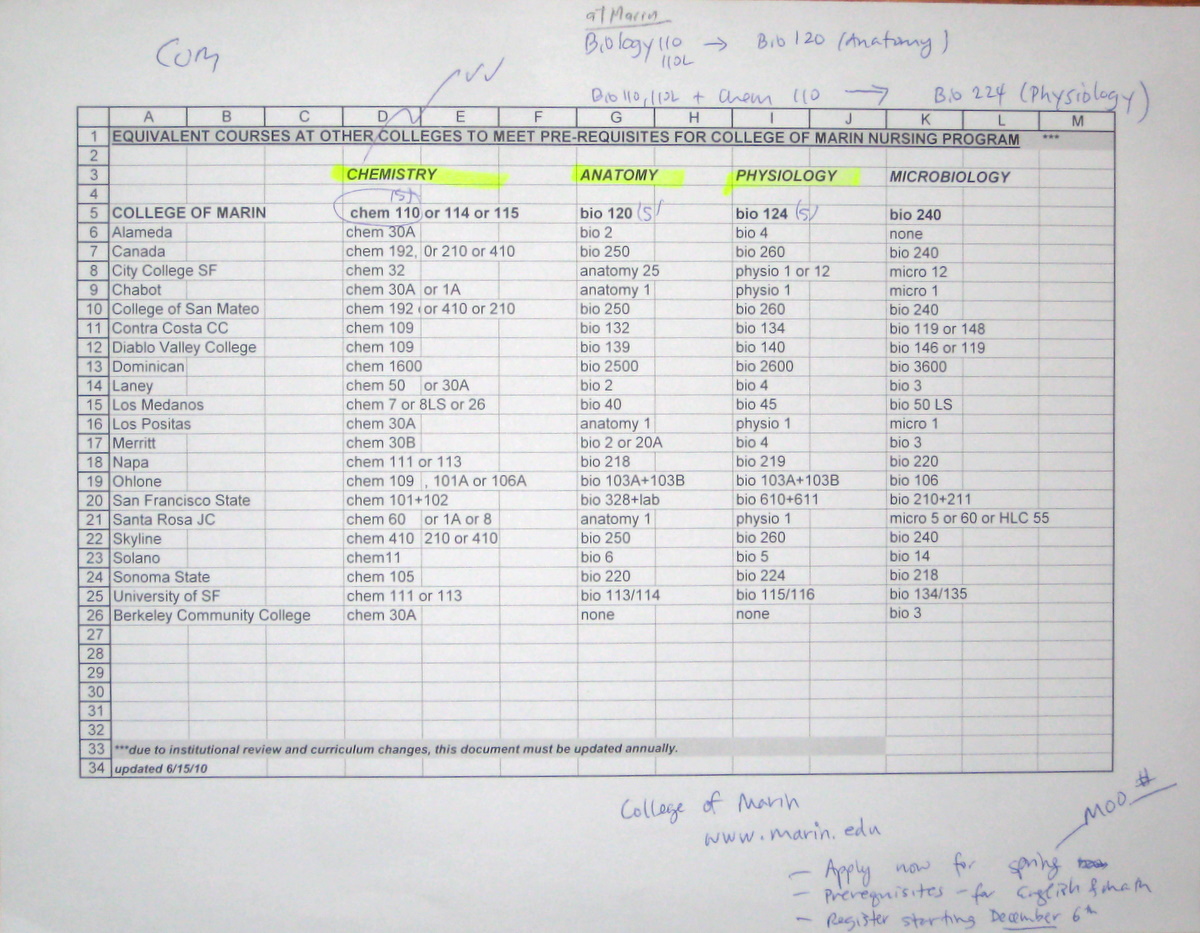 at Marin
Biology 110 → Bio 120 (Anatomy)
110L
COM
Bio 110, 110L + Chem 110 → Bio 224 (Physiology)
A B C D E F G H I J K L M
1 EQUIVALENT COURSES AT OTHER COLLEGES TO MEET PRE-REQUISITES FOR COLLEGE OF MARIN NURSING PROGRAM ***
2
3 CHEMISTRY ANATOMY PHYSIOLOGY MICROBIOLOGY
4 (5)
5 COLLEGE OF MARIN chem 110 or 114 or 115 bio 120 (5) bio 124 (5) bio 240
6 Alameda chem 30A bio 2 bio 4 none
7 Canada chem 192, 0r 210 or 410 bio 250 bio 260 bio 240
8 City College SF chem 32 anatomy 25 physio 1 or 12 micro 12
9 Chabot chem 30A or 1A anatomy 1 physio 1 micro 1
10 College of San Mateo chem 192 or 410 or 210 bio 250 bio 260 bio 240
11 Contra Costa CC chem 109 bio 132 bio 134 bio 119 or 148
12 Diablo Valley College chem 109 bio 139 bio 140 bio 146 or 119
13 Dominican chem 1600 bio 2500 bio 2600 bio 3600
14 Laney chem 50 or 30A bio 2 bio 4 bio 3
15 Los Medanos chem 7 or 8LS or 26 bio 40 bio 45 bio 50 LS
16 Los Positas chem 30A anatomy 1 physio 1 micro 1
17 Merritt chem 30B bio 2 or 20A bio 4 bio 3
18 Napa chem 111 or 113 bio 218 bio 219 bio 220
19 Ohlone chem 109 , 101A or 106A bio 103A+103B bio 103A+103B bio 106
20 San Francisco State chem 101+102 bio 328+lab bio 610+611 bio 210+211
21 Santa Rosa JC chem 60 or 1A or 8 anatomy 1 physio 1 micro 5 or 60 or HLC 55
22 Skyline chem 410 210 or 410 bio 250 bio 260 bio 240
23 Solano chem11 bio 6 bio 5 bio 14
24 Sonoma State chem 105 bio 220 bio 224 bio 218
25 University of SF chem 111 or 113 bio 113/114 bio 115/116 bio 134/135
26 Berkeley Community College chem 30A none none bio 3
27
28
29
30
31
32
33 ***due to institutional review and curriculum changes, this document must be updated annually.
34 updated 6/15/10
College of Marin
www.marin.edu
MOO #
- Apply now for spring
- Prerequisites - for English & math
- Register starting December 6th